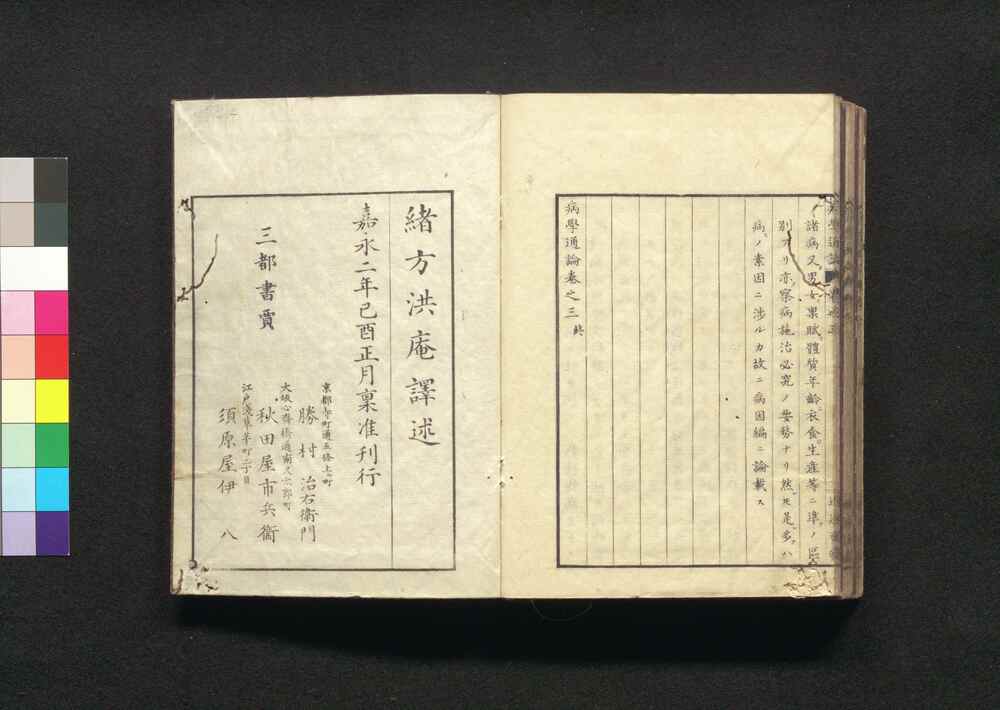 諸病又男女禀賦體質年齡衣食生産等ニ準ノ區
別アリ亦察病施治必究ノ要務ナリ然𪜈是多ハ
病ノ素因ニ渉ルカ故ニ病因編ニ論載ス
病學通論卷之三 終
緒方洪庵譯述
嘉永二年己酉正月稟准刊行
三都書賈
京都寺町通五條上町
勝村治右衛門
大坂心齋橋通南久太郎町
秋田屋市兵衞
江戸淺草茅町二丁目
須原屋伊八